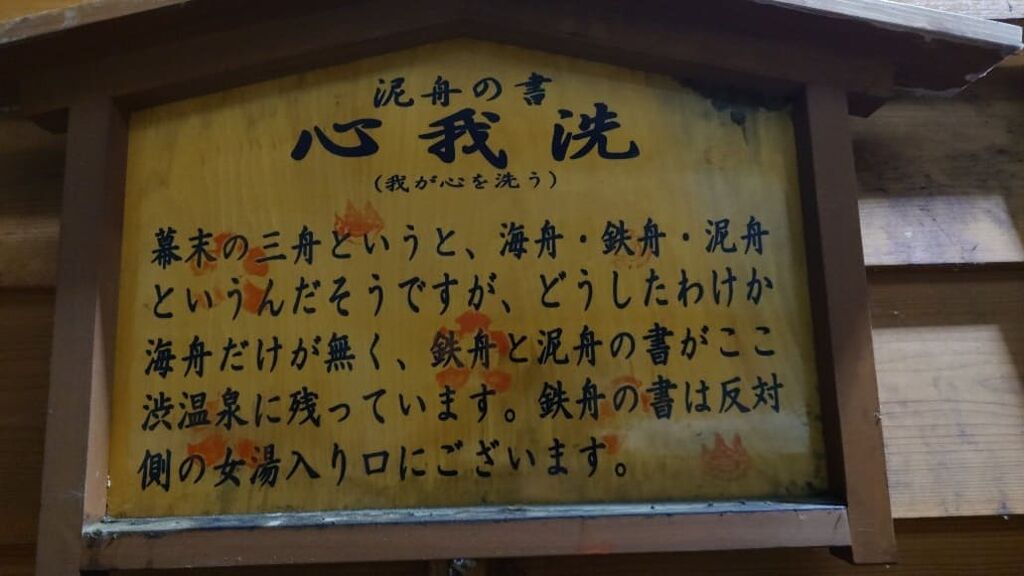 泥舟の書
心我洗
（我が心を洗う）
幕末の三舟というと、海舟・鉄舟・泥舟
というんだそうですが、どうしたわけか
海舟だけが無く、鉄舟と泥舟の書がここ
渋温泉に残っています。鉄舟の書は反対
側の女湯入り口にございます。